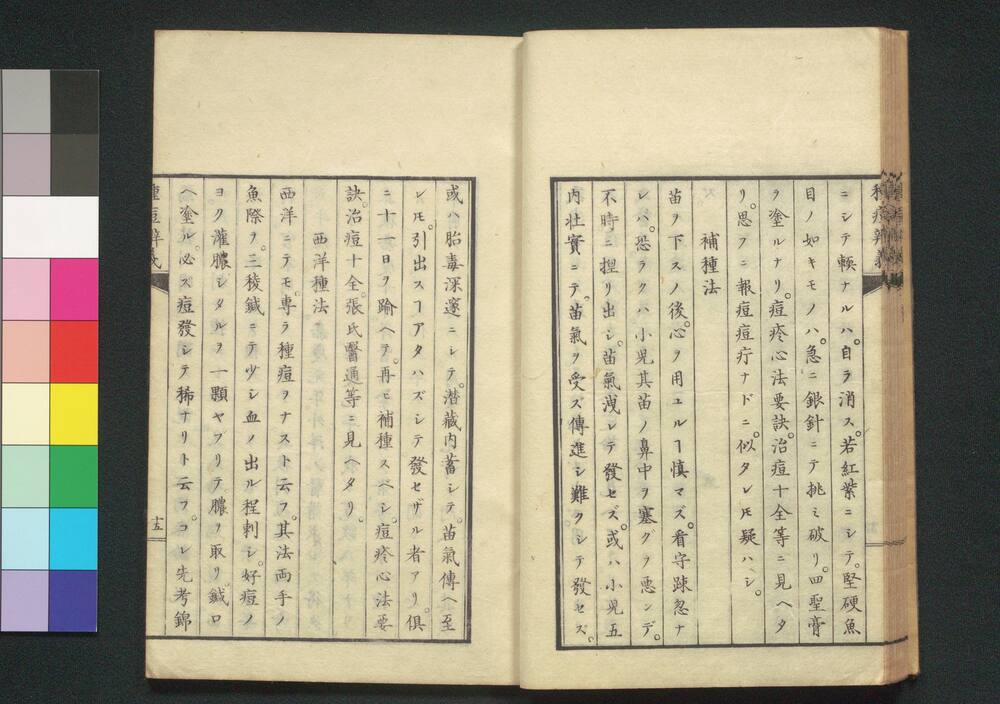 ニシテ輭ナルハ。自ラ消ス。若紅紫ニシテ。堅硬魚
目ノ如キモノハ。急ニ銀針ニテ挑ミ破リ。四聖膏
ヲ塗ルナリ。痘疹心法要訣。治痘十全等ニ見ヘタ
リ。思フニ報痘痘疔ナドニ。似タレ𪜈疑ハシ。
補種法
苗ヲ下スノ後。心ヲ用ユルヿ慎マズ。看守踈忽ナ
レバ。恐ラクハ小児其苗ノ鼻中ヲ塞グヲ悪ンデ。
不時ニ揑リ出シ。苗氣洩レテ發セズ。或ハ小児五
内壮實ニテ。苗氣ヲ受ズ傳進シ難クシテ發セズ。
或ハ胎毒深邃ニシテ。潜藏内蓄シテ。苗氣傳ヘ至
レ𪜈。引出スヿアタハズシテ發セザル者アリ。俱
ニ十一日ヲ踰ヘテ。再ヒ補種スベシ。痘疹心法要
訣。治痘十全。張氏醫通等ニ見ヘタリ。
西洋種法
西洋ニテモ。専ラ種痘ヲナスト云フ。其法両手ノ
魚際ヲ。三稜鍼ニテ少シ血ノ出ル程刺シ。好痘ノ
ヨク灌膿シタルヲ一顆ヤブリテ。膿ヲ取リ。鍼口
ヘ塗ル。必ス痘發シテ稀ナリト云フ。コレ先考錦
種痘辨義
十五